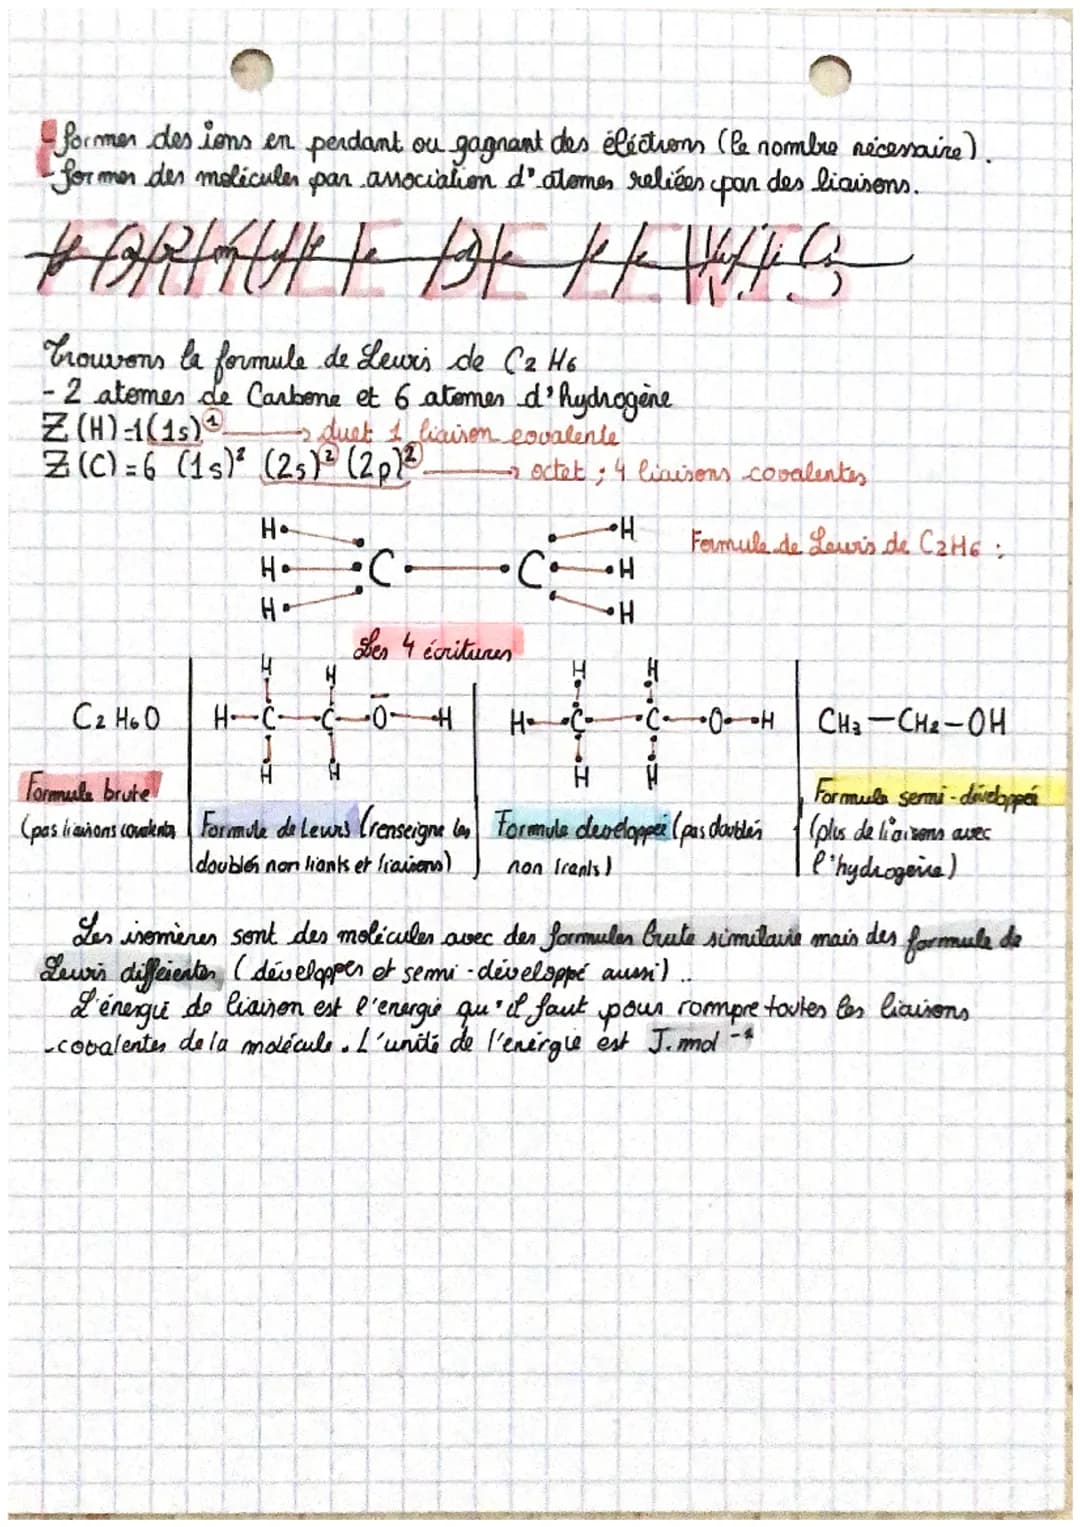 - former des ions en perdant ou gagnant des éléctrons (le nombre nécessaire).
- former des molécules par association d'atomes reliées par des liaisons.
FORMULE DE LEWIS
Trouvons la formule de Lewis de C2 H6
- 2 atomes de Carbone et 6 atomes d'hydrogène
Z(H)=1(1s)¹ → duet 1 liaison covalente
Z(C)=6 (1s)² (2s)² (2p)² → octet ; 4 liaisons covalentes
H H
H C C H
H H
Formule de Lewis de C2H6 :
Les 4 écritures
C2 H6O
H H
H C C O H
H H
H H
H C C O H
H H
CH3-CH2-OH
Formule brute
(pas liaisons covalentes
Formule de Lewis (renseigne les
doublés non liants et liaisons)
Formule developpée (pas doublés
non liants)
Formule semi-développée
(plus de liaisons avec
l'hydrogène)
Les isomères sont des molécules avec des formules brute similaire mais des formule de
Lewis différentes (développer et semi-développé aussi)..
L'énergie de liaison est l'energie qu'il faut pour rompre toutes les liaisons
covalentes de la molécule. L'unité de l'énergie est J.mol⁻¹